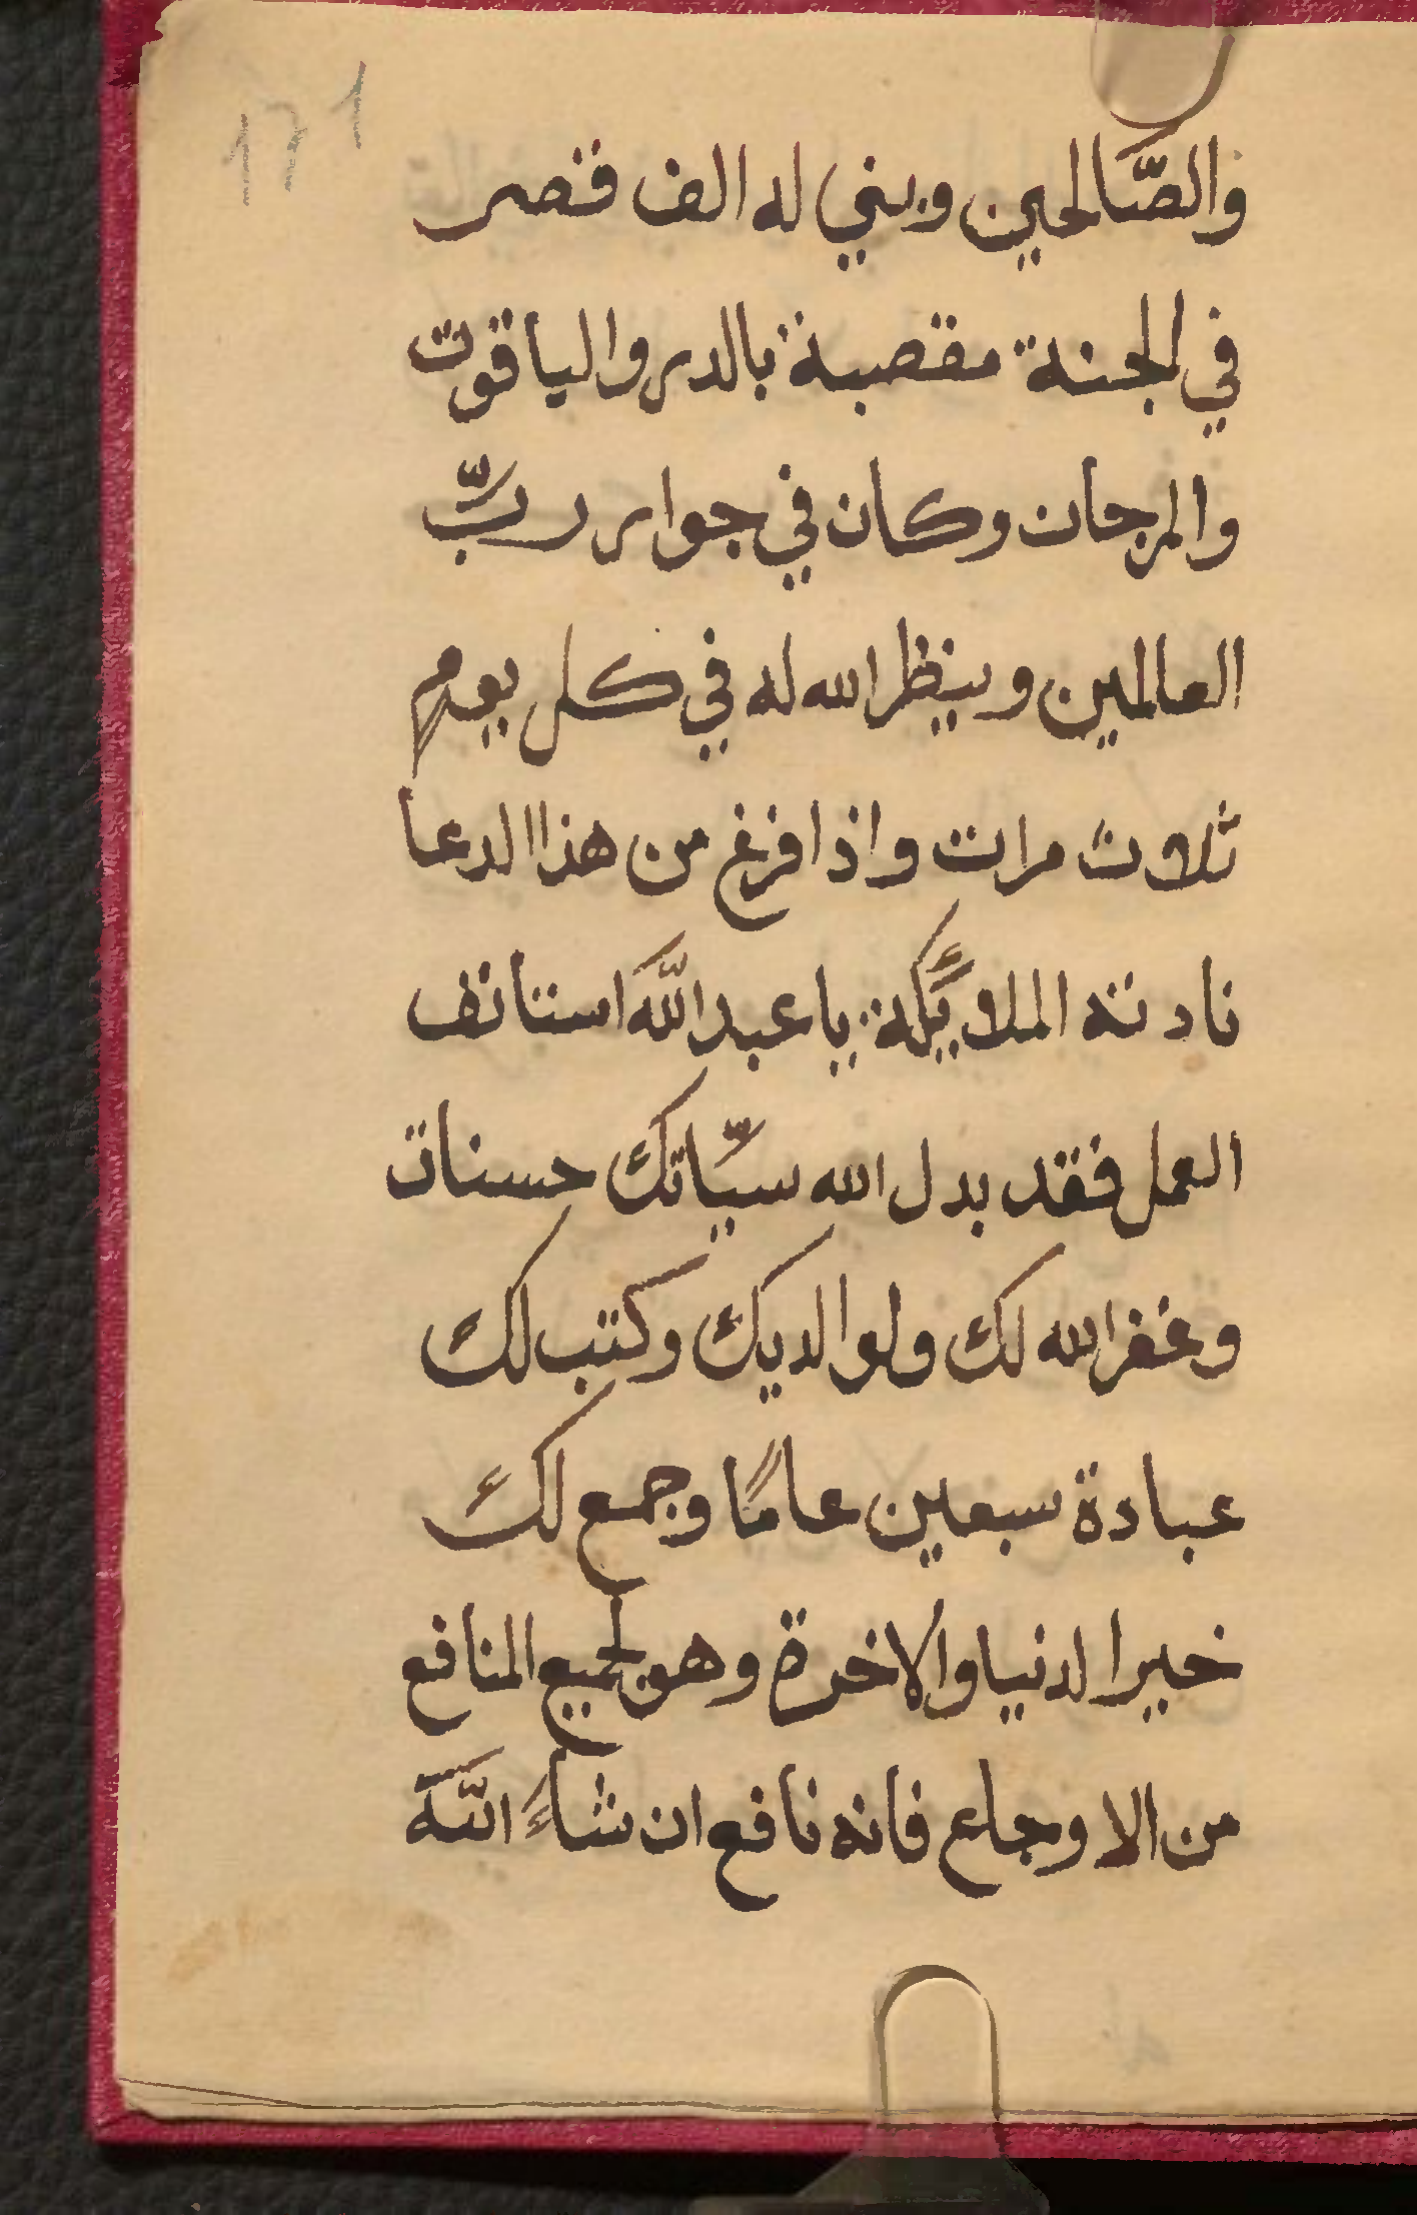 ١٢١
والصَّالحين ويبني له الف قصر
في الجنة مقصبة بالدر والياقوت
والمرجان وكان في جوار ربّ
العالمين وينظر الله له في كل يوم
ثلاث مرات واذا فرغ من هذا الدعا
نادته الملايكة يا عبد اللّه استانف
العمل فقد بدل الله سيّاتك حسنات
وغفر الله لك ولوالديك وكتب لك
عبادة سبعين عامًا وجمع لك
خير الدنيا والاخرة وهو لجميع المنافع
من الاوجاع فانه نافع ان شاءَ اللّه